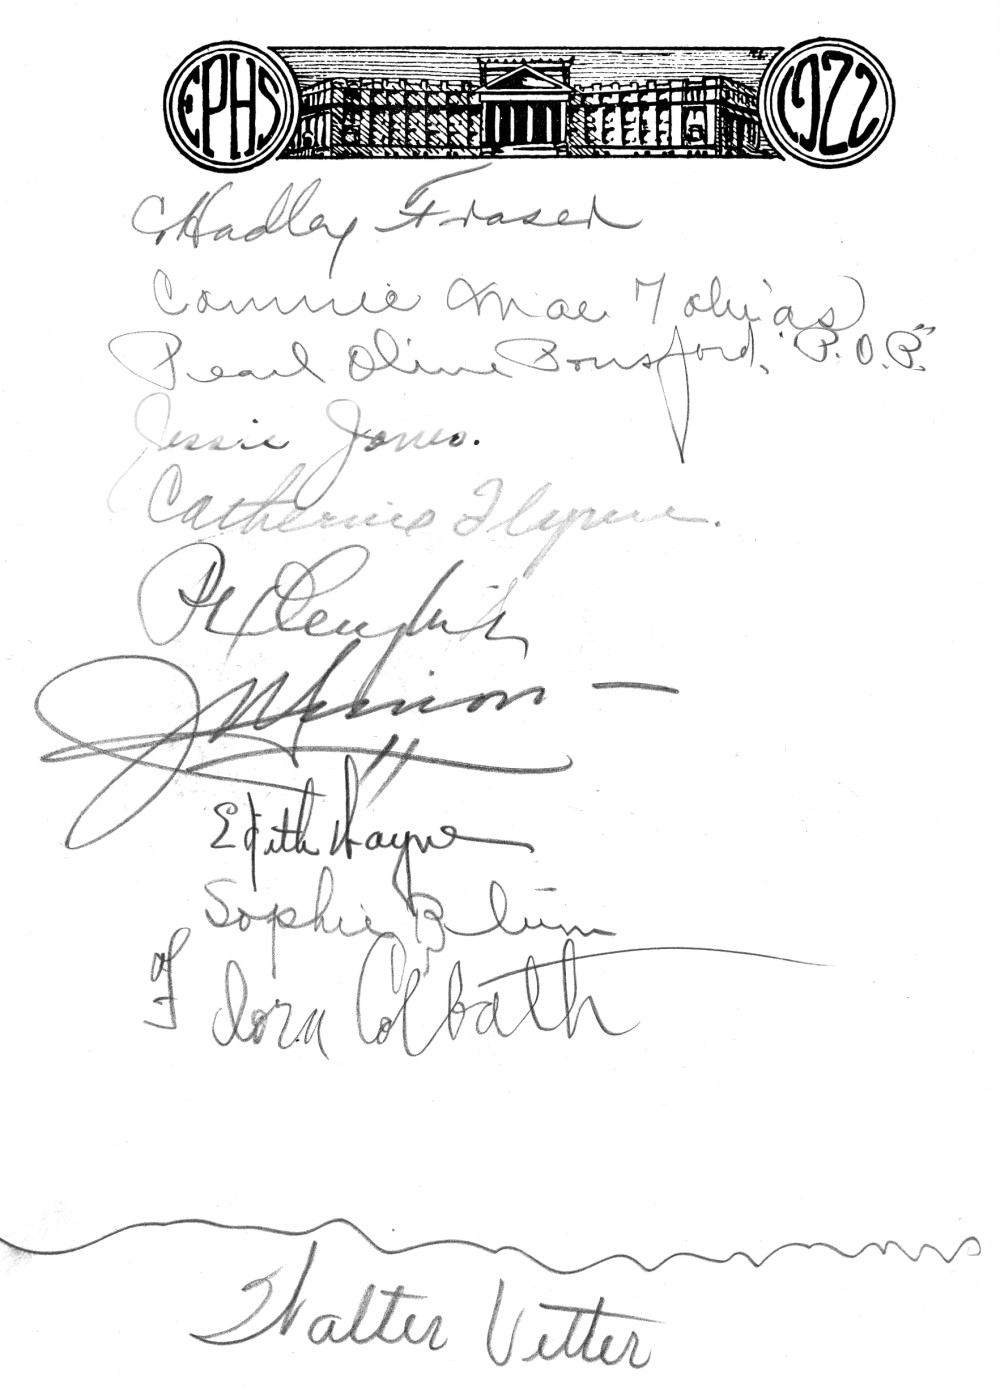 EPHS 1922
Hadley Fraser
Connie Mae Tobias
Pearl Olive Ponsford, "P.O.P."
Jessie Jones.
Catherine Flynne.
Edith Wayne
Sophie Blum
Flora Colbath
Walter Vetter